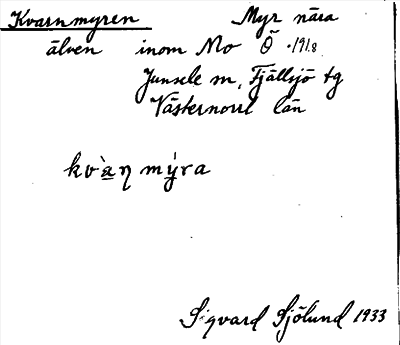 Kvarnmyren Myr nära
älven inom Mo Ö .1918
Junsele sn, Fjällsjö tg
Västernorrl län
kv̀a̲ƞ mýra
Sigvard Sjölund 1933